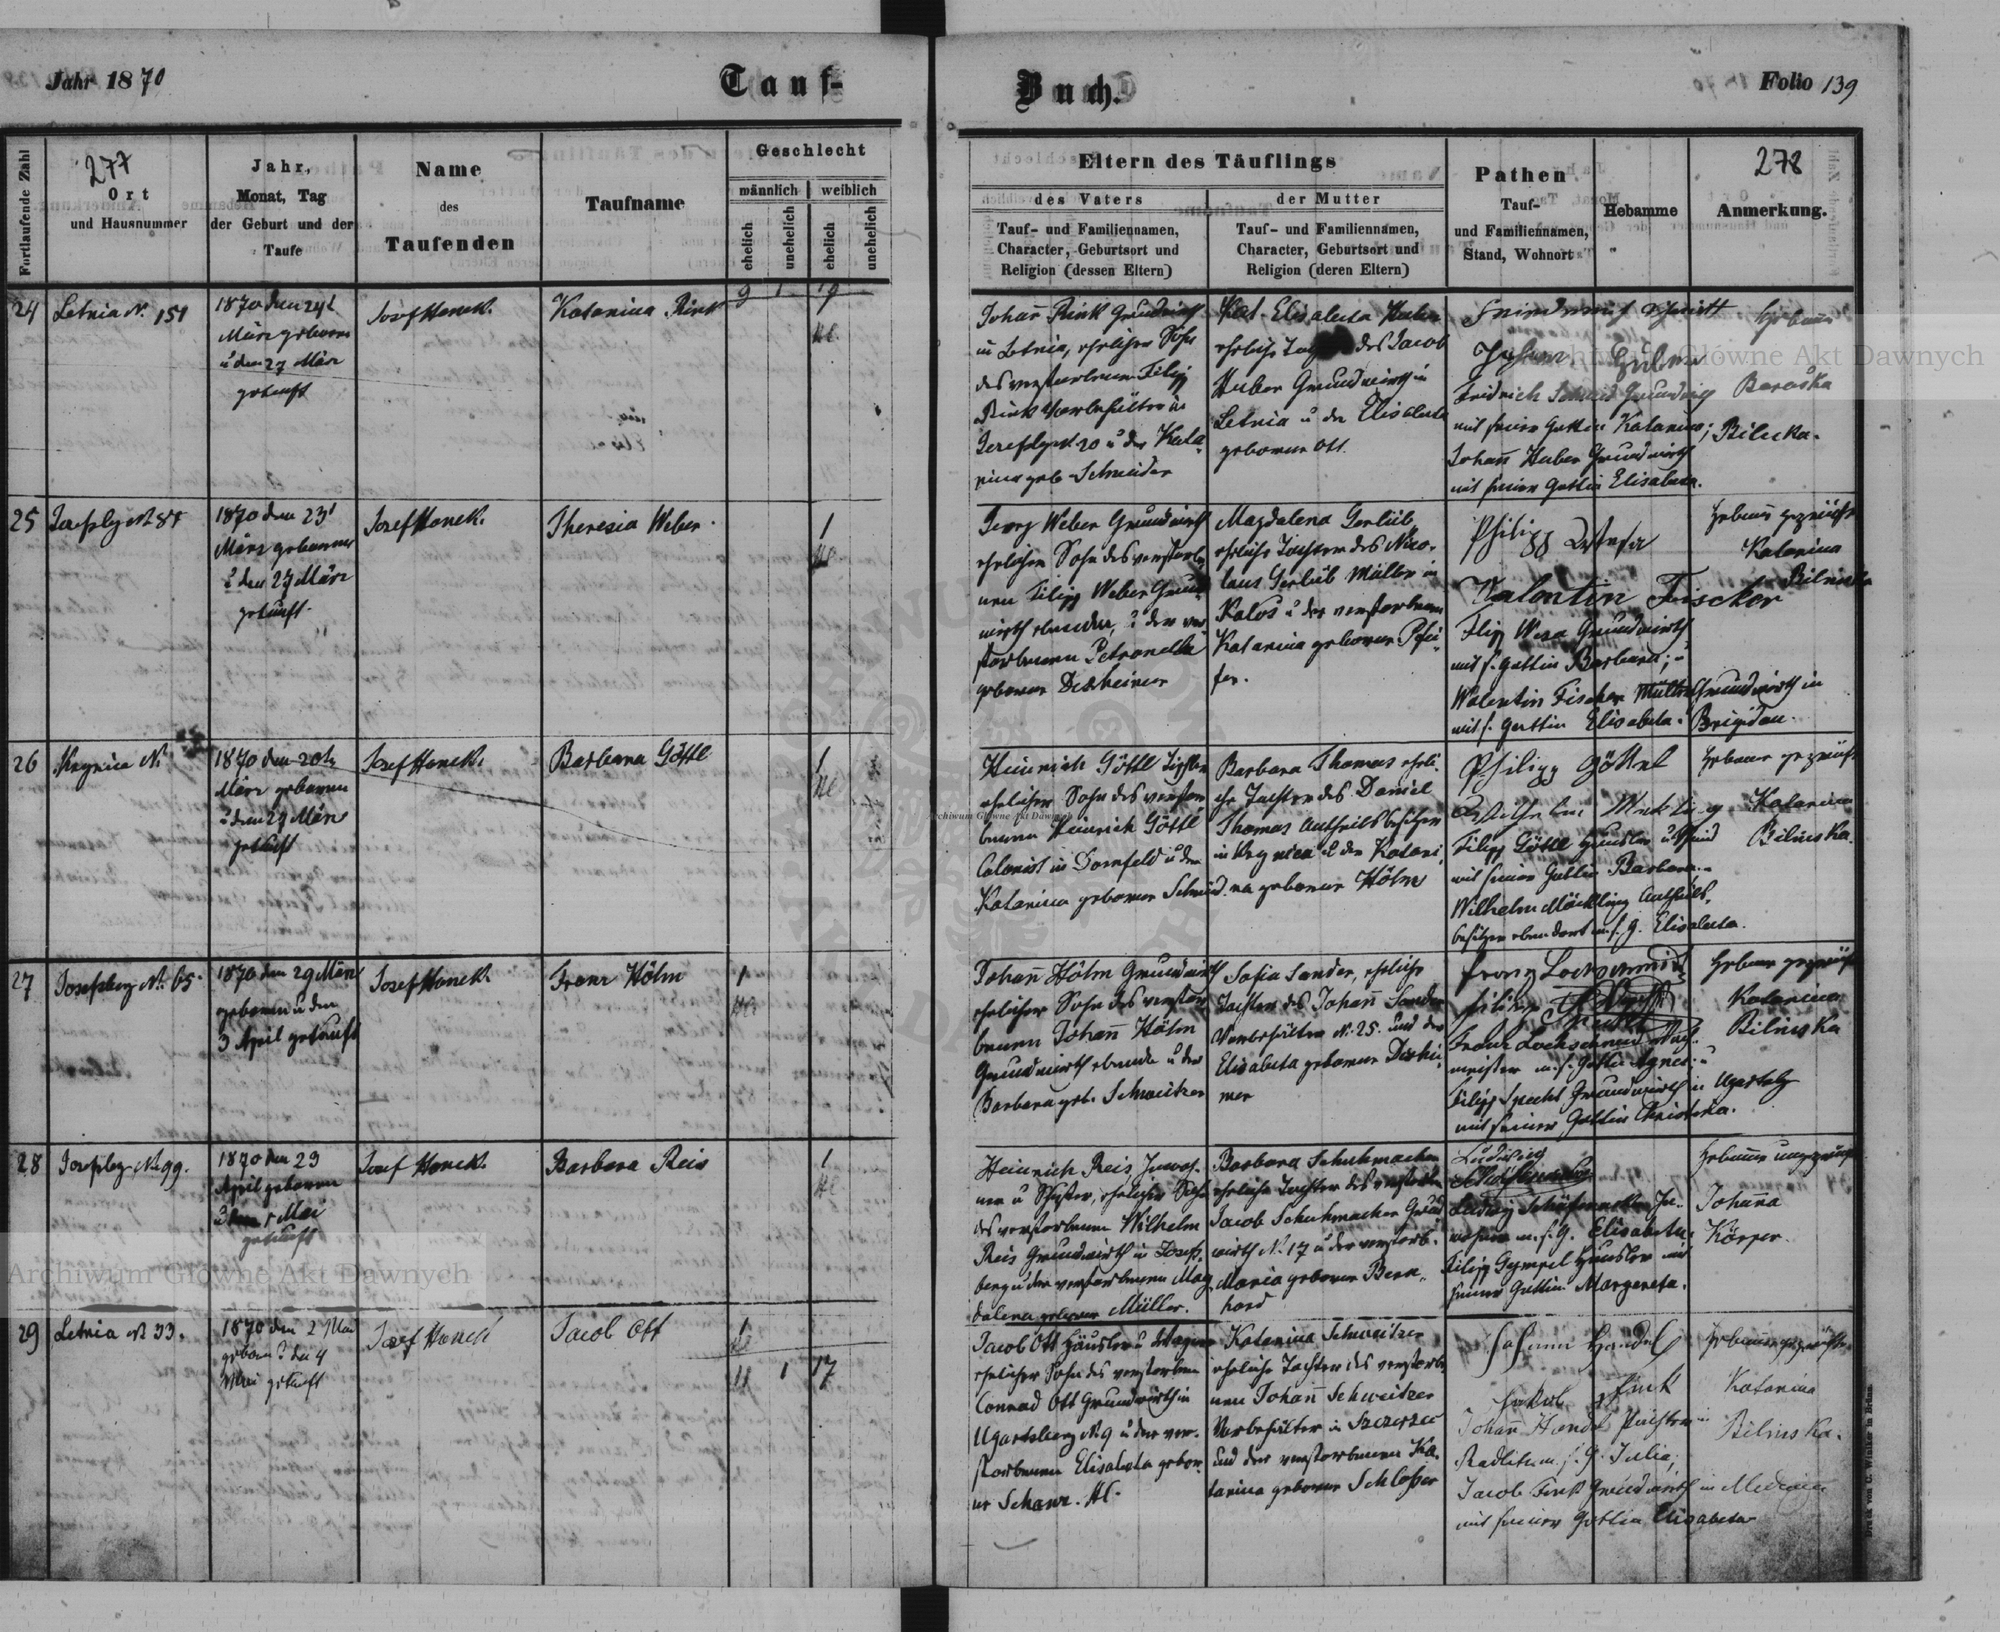 Jahr 1870
Tauf-
Buch.
Folio 139
Fortlaufende Zahl
277
Ort
und Hausnummer
Jahr,
Monat, Tag
der Geburt und der
Taufe
Name
des
Taufenden
Taufname
Geschlecht
männlich
weiblich
ehelich
unehelich
ehelich
unehelich
Eltern des Täuflings
des Vaters
Tauf- und Familiennamen,
Character, Geburtsort und
Religion (dessen Eltern)
der Mutter
Tauf- und Familiennamen,
Character, Geburtsort und
Religion (deren Eltern)
Pathen
Tauf-
und Familiennamen,
Stand, Wohnort
Hebamme
278
Anmerkung.
24
Letnia N. 151
1870 den 24t
März geboren
u den 27 März
getauft
Josef Hanek.
Katarina Rink
9 1 19
Johan̄ Rink Grundwirth
in Letnia, ehelicher Sohn
des verstorbenen Filipp
Rink Vorbehälter in
Josefsbg N 20 u der Kata
rina geb. Schneider
Kat. Elisabeta Huber
eheliche des Jacob
Huber Grundwirth in
Letnia u der Elisabeta
geborene Ott.
Johann Huber
Fridrich Schmid Grundwirth
mit seiner Gattin Katarina;
Johan̄ Huber Grundwirth
mit seiner Gattin Elisabeta.
Hebam̄e
Baraska
Bilicka.
25
Josefsbg N 85
1870 den 23t
März geboren
u den 27 März
getauft.
Josef Hanek.
Theresia Weber.
1
Georg Weber Grundwirth
ehelicher Sohn des verstorbe
nen Filipp Weber Grund
wirth ebenda, u der ver
storbenen Petronella
geborene Dexheimer
Magdalena Gerlieb
eheliche Tochter des Nico-
laus Gerlieb Müller in
Kalos u der verstorbenen
Katarina geborene Pfei-
fer.
Philipp
Valentin Fischer
Filip Weza Grundwirth
mit s. Gattin Barbara; u
Walentin Fischer Grundwirth in
mit s. Gattin Elisabeta. Brigidau.
Hebam̄e geprüfte
Katarina
Bilinska
26
Krynica N.
1870 den 20t
März geboren
u den 29 März
getauft
Josef Hanek.
Barbara Göttl
1
Heinrich Göttl Tischler
ehelicher Sohn des verstor
benen Heinrich Göttl
Colonist in Dornfeld u der
Katarina geborene Schmid.
Barbara Thomas eheli-
che Tochter des Daniel
Thomas Antheilsbesitzer
in Krynica u der Katari
na geborene Hölm
Philipp Göttel
Filipp Göttl Häusler u Schmid
mit seiner Gattin Barbara.
Wilhelm Möckling Antheils-
besitzer ebendort m. s. G. Elisabeta.
Hebame geprüft
Katarina
Bilinska.
27
Josefsberg N. 65.
1870 den 29 März
geboren u den
3 April getauft
Josef Hanek.
Franz Hölm
1
Johan̄ Hölm Grundwirth
ehelicher Sohn des verstor
benen Johan̄ Hölm
Grundwirth ebenda u der
Barbara geb. Schweitzer
Sofia Sander, eheliche
Tochter des Johan̄ Sander
Vorbehälter N. 25. und der
Elisabeta geborene Dexhei-
mer
Franz Lochschmid
Filipp Specht
Franz Lochschmid
meister m. s. Gattin Agnes; u
Filipp Specht Grundwirth in Ugartsbg
mit seiner Gattin Christina.
Hebame geprüft
Katarina
Bilinska
28
Josefsbg N. 99.
1870 den 23
April geboren
u den 1 Mai
getauft
Josef Hanek.
Barbara Reis
1
Heinrich Reis, Inwoh-
ner u Schuster, ehelicher Sohn
des verstorbenen Wilhelm
Reis Grundwirth in Josefs-
berg u der verstorbenen Mag
dalena geborene Müller.
Barbara Schuhmacher
eheliche Tochter des verstorben
Jacob Schuhmacher Grund
wirth N. 17 u der verstorb.
Maria geborene Bern-
hard
Ludwig
Ludwig In-
wohner m. s. G. Elisabeta.
Filipp Gympel Häusler mit
seiner Gattin Margareta.
Hebam̄e ungeprüft
Johan̄a
Körper.
29
Letnia N 33.
1870 den 2 Mai
gebor. u den 4
Mai getauft
Josef Hanek
Jacob Ott
1
11 1 17
Jacob Ott Häusler u Wagner
ehelicher Sohn des verstorbenen
Conrad Ott Grundwirth in
Ugartsberg N. 9 u der ver-
storbenen Elisabeta gebor-
ne Schanz.
Katarina Schweitzer
eheliche Tochter des verstorbe-
nen Johan̄ Schweitzer
Vorbehälter in Szczerzec
und der verstorbenen Ka-
tarina geborene Schloßer
Johann Handel
Jakob Fink
Johan̄ Handel Pächter in
m. s. G. Julia;
Jacob Fink Grundwirth in Medenice
mit seiner Gattin Elisabeta
Hebam̄e geprüfte
Katarina
Bilinska.
Druck von C. Winiker in Brünn.
Archiwum Główne Akt Dawnych
Archiwum Główne Akt Dawnych
Archiwum Główne Akt Dawnych